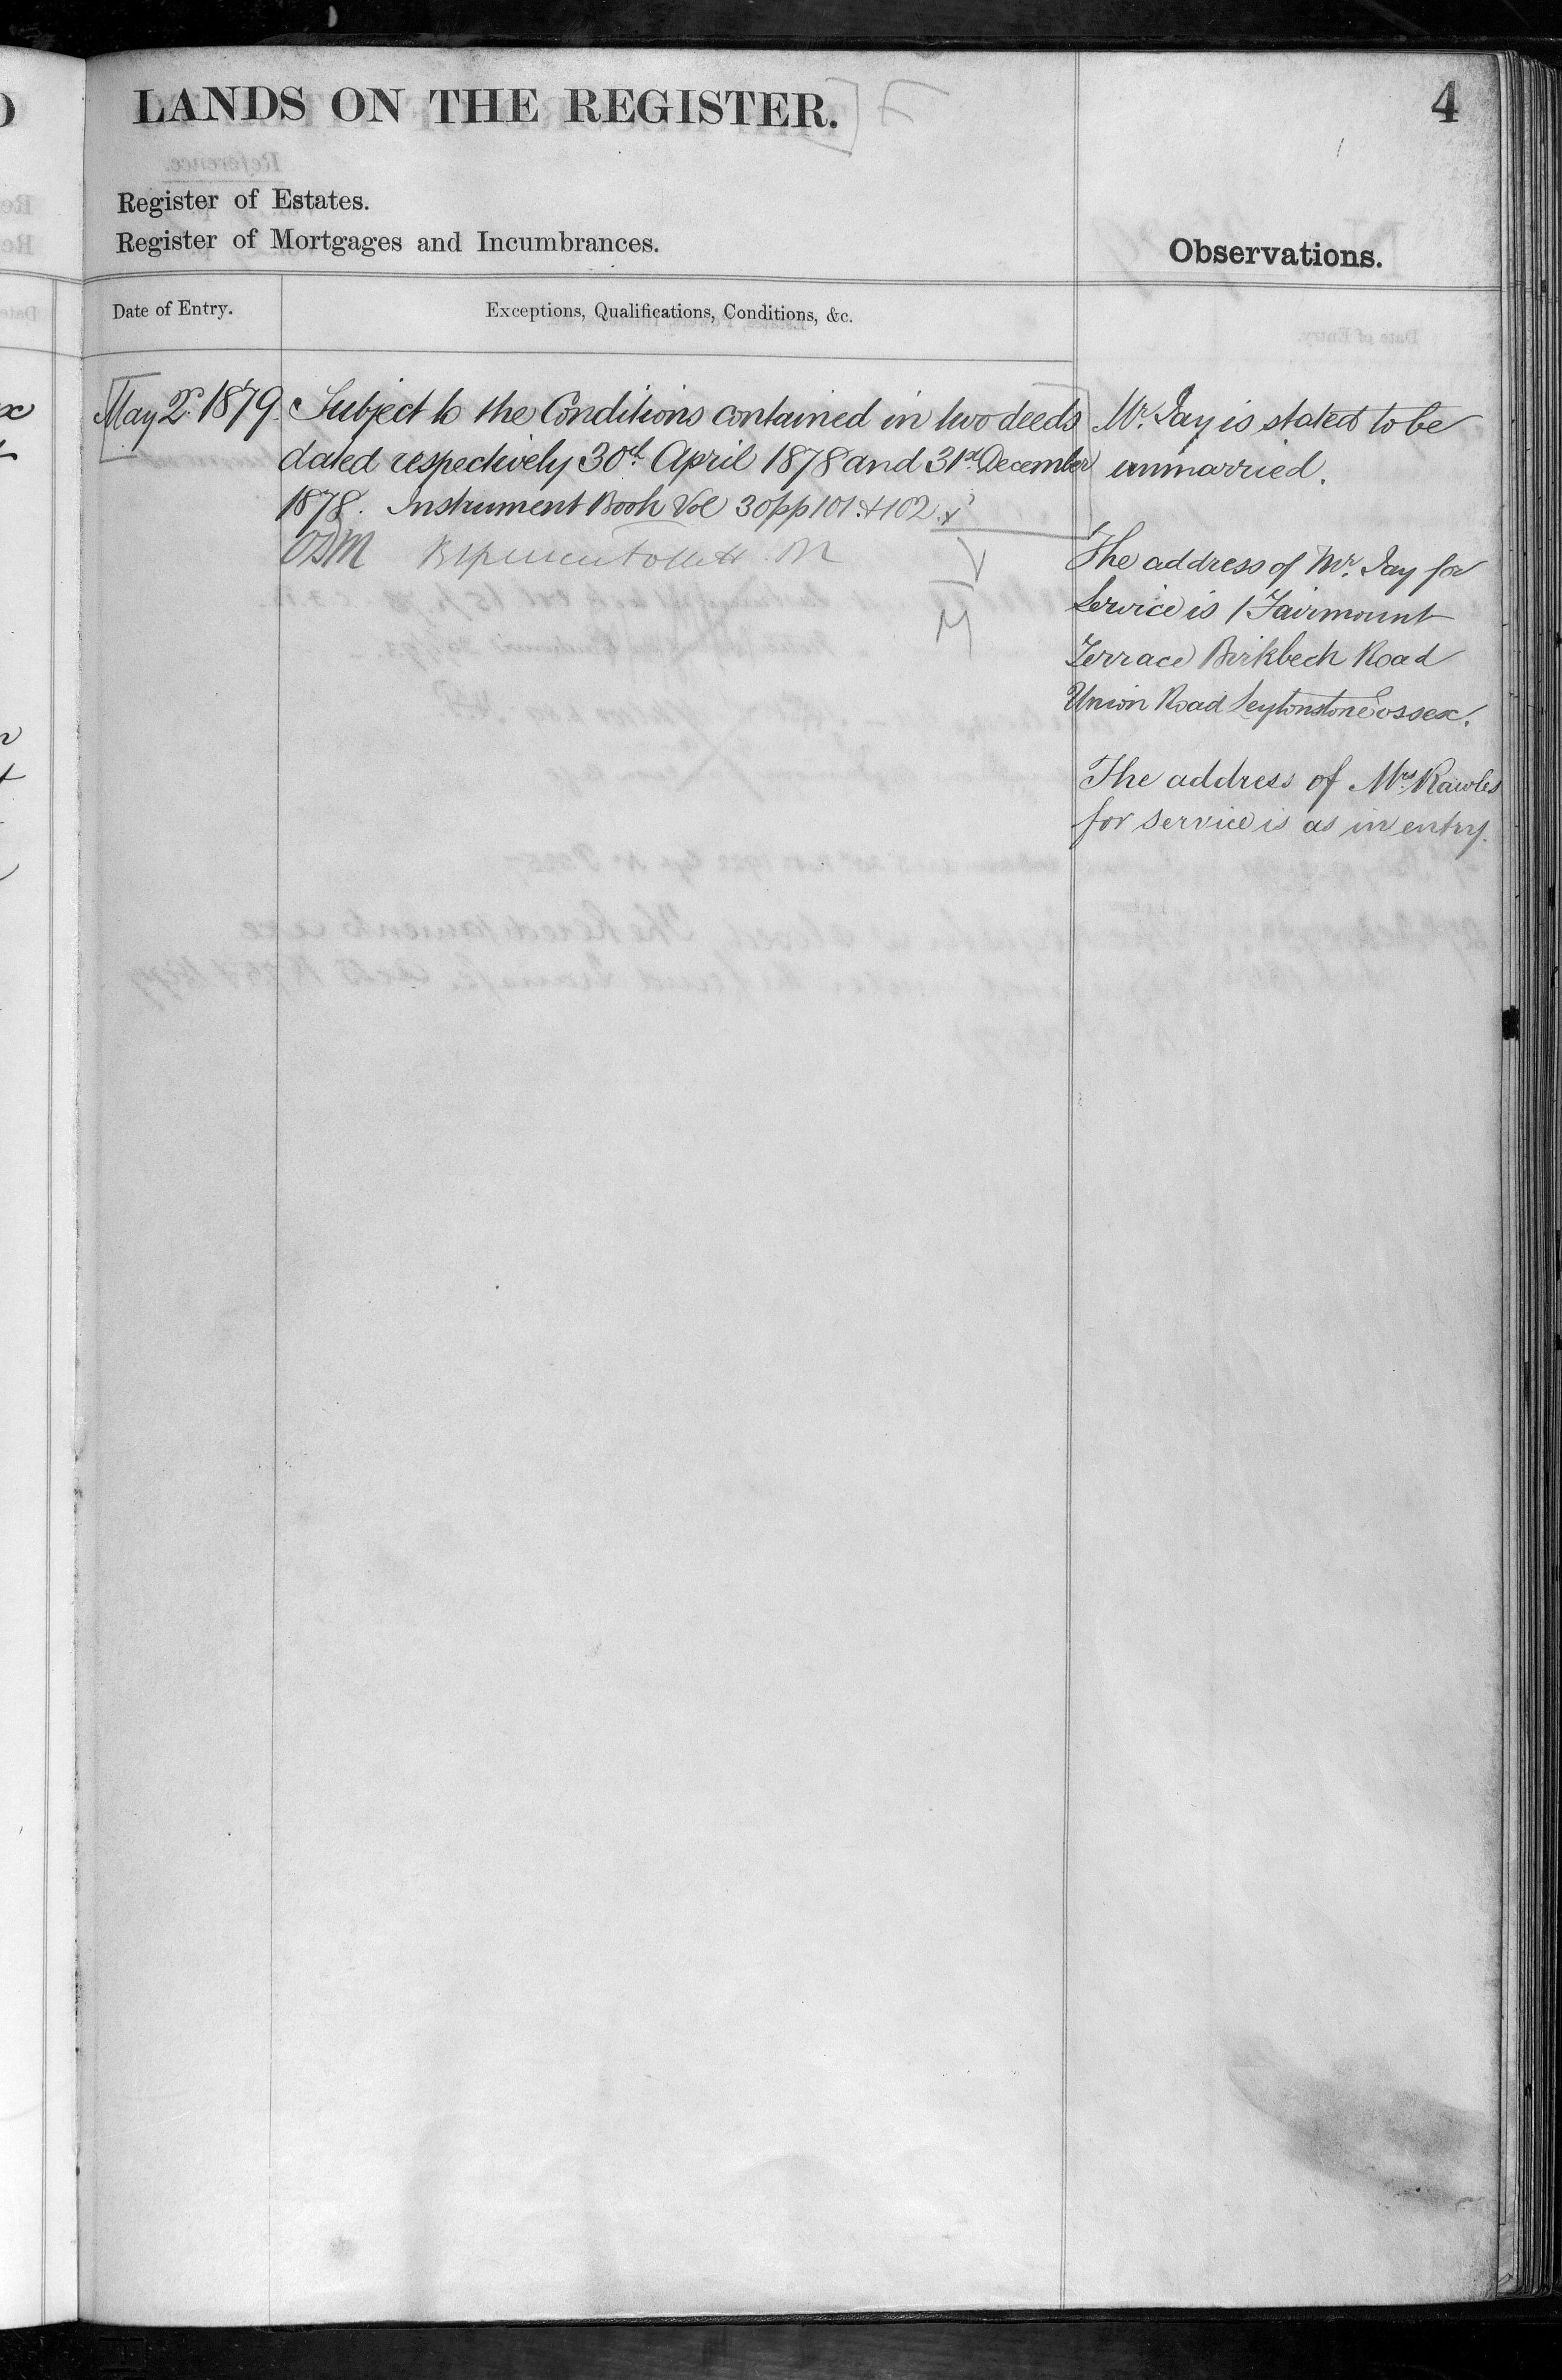 LANDS ON THE REGISTER.
4
Register of Estates.
Register of Mortgages and Incumbrances.
Observations.
Date of Entry.
Exceptions, Qualifications, Conditions, &c.
May 2d. 1879.
Subject to the Conditions contained in two deeds
dated respectively 30th April 1878 and 31st December
1878. Instrument Book Vol 30 pp 101. & 102.
Mr. Jay is stated to be
unmarried.
The address of Mr. Jay for
Service is 1 Fairmount
Terrace Birkbeck Road
Union Road Leytonstone Essex.
The address of Mrs Rawles
for service is as in entry.